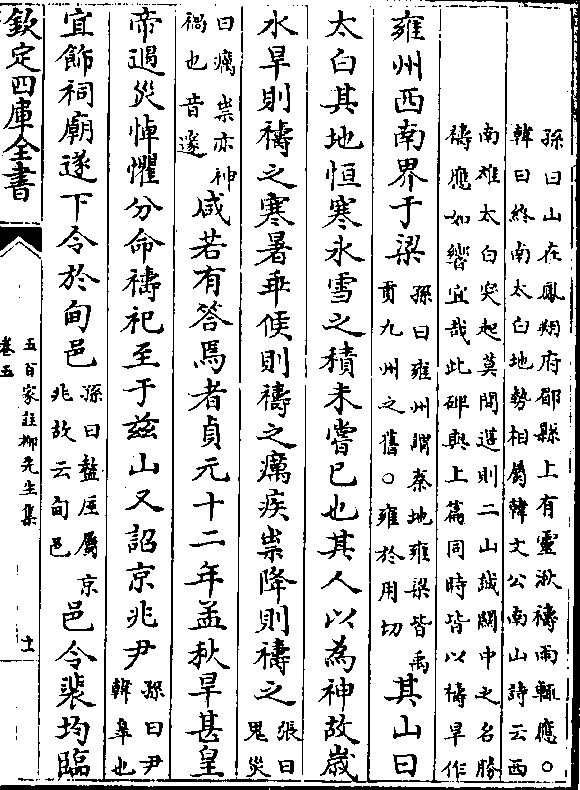 孫曰山在鳳翔府郿縣上有靈湫禱雨輒應○
韓曰終南太白地勢相屬韓文公南山詩云西
南雄太白突起莫間簉則二山誠關中之名勝
禱應如響宜哉此碑與上篇同時皆以禱旱作
雍州西南界于梁孫曰雍州謂秦地雍梁皆禹貢九州之舊○雍於用切其山曰
太白其地恒寒氷雪之積未嘗已也其人以為神故歳
水旱則禱之寒暑乖候則禱之癘疾祟降則禱之張曰鬼災
曰癘祟亦神禍也昔邃咸若有答焉者貞元十二年孟秋旱甚皇
帝遇災悼懼分命禱祀至于兹山又詔京兆尹孫曰尹韓臯也
宜飾祠廟遂下令於甸邑孫曰盩厔屬京兆故云甸邑邑令裴均臨
欽定四庫全書
五百家註柳先生集
卷五
十一